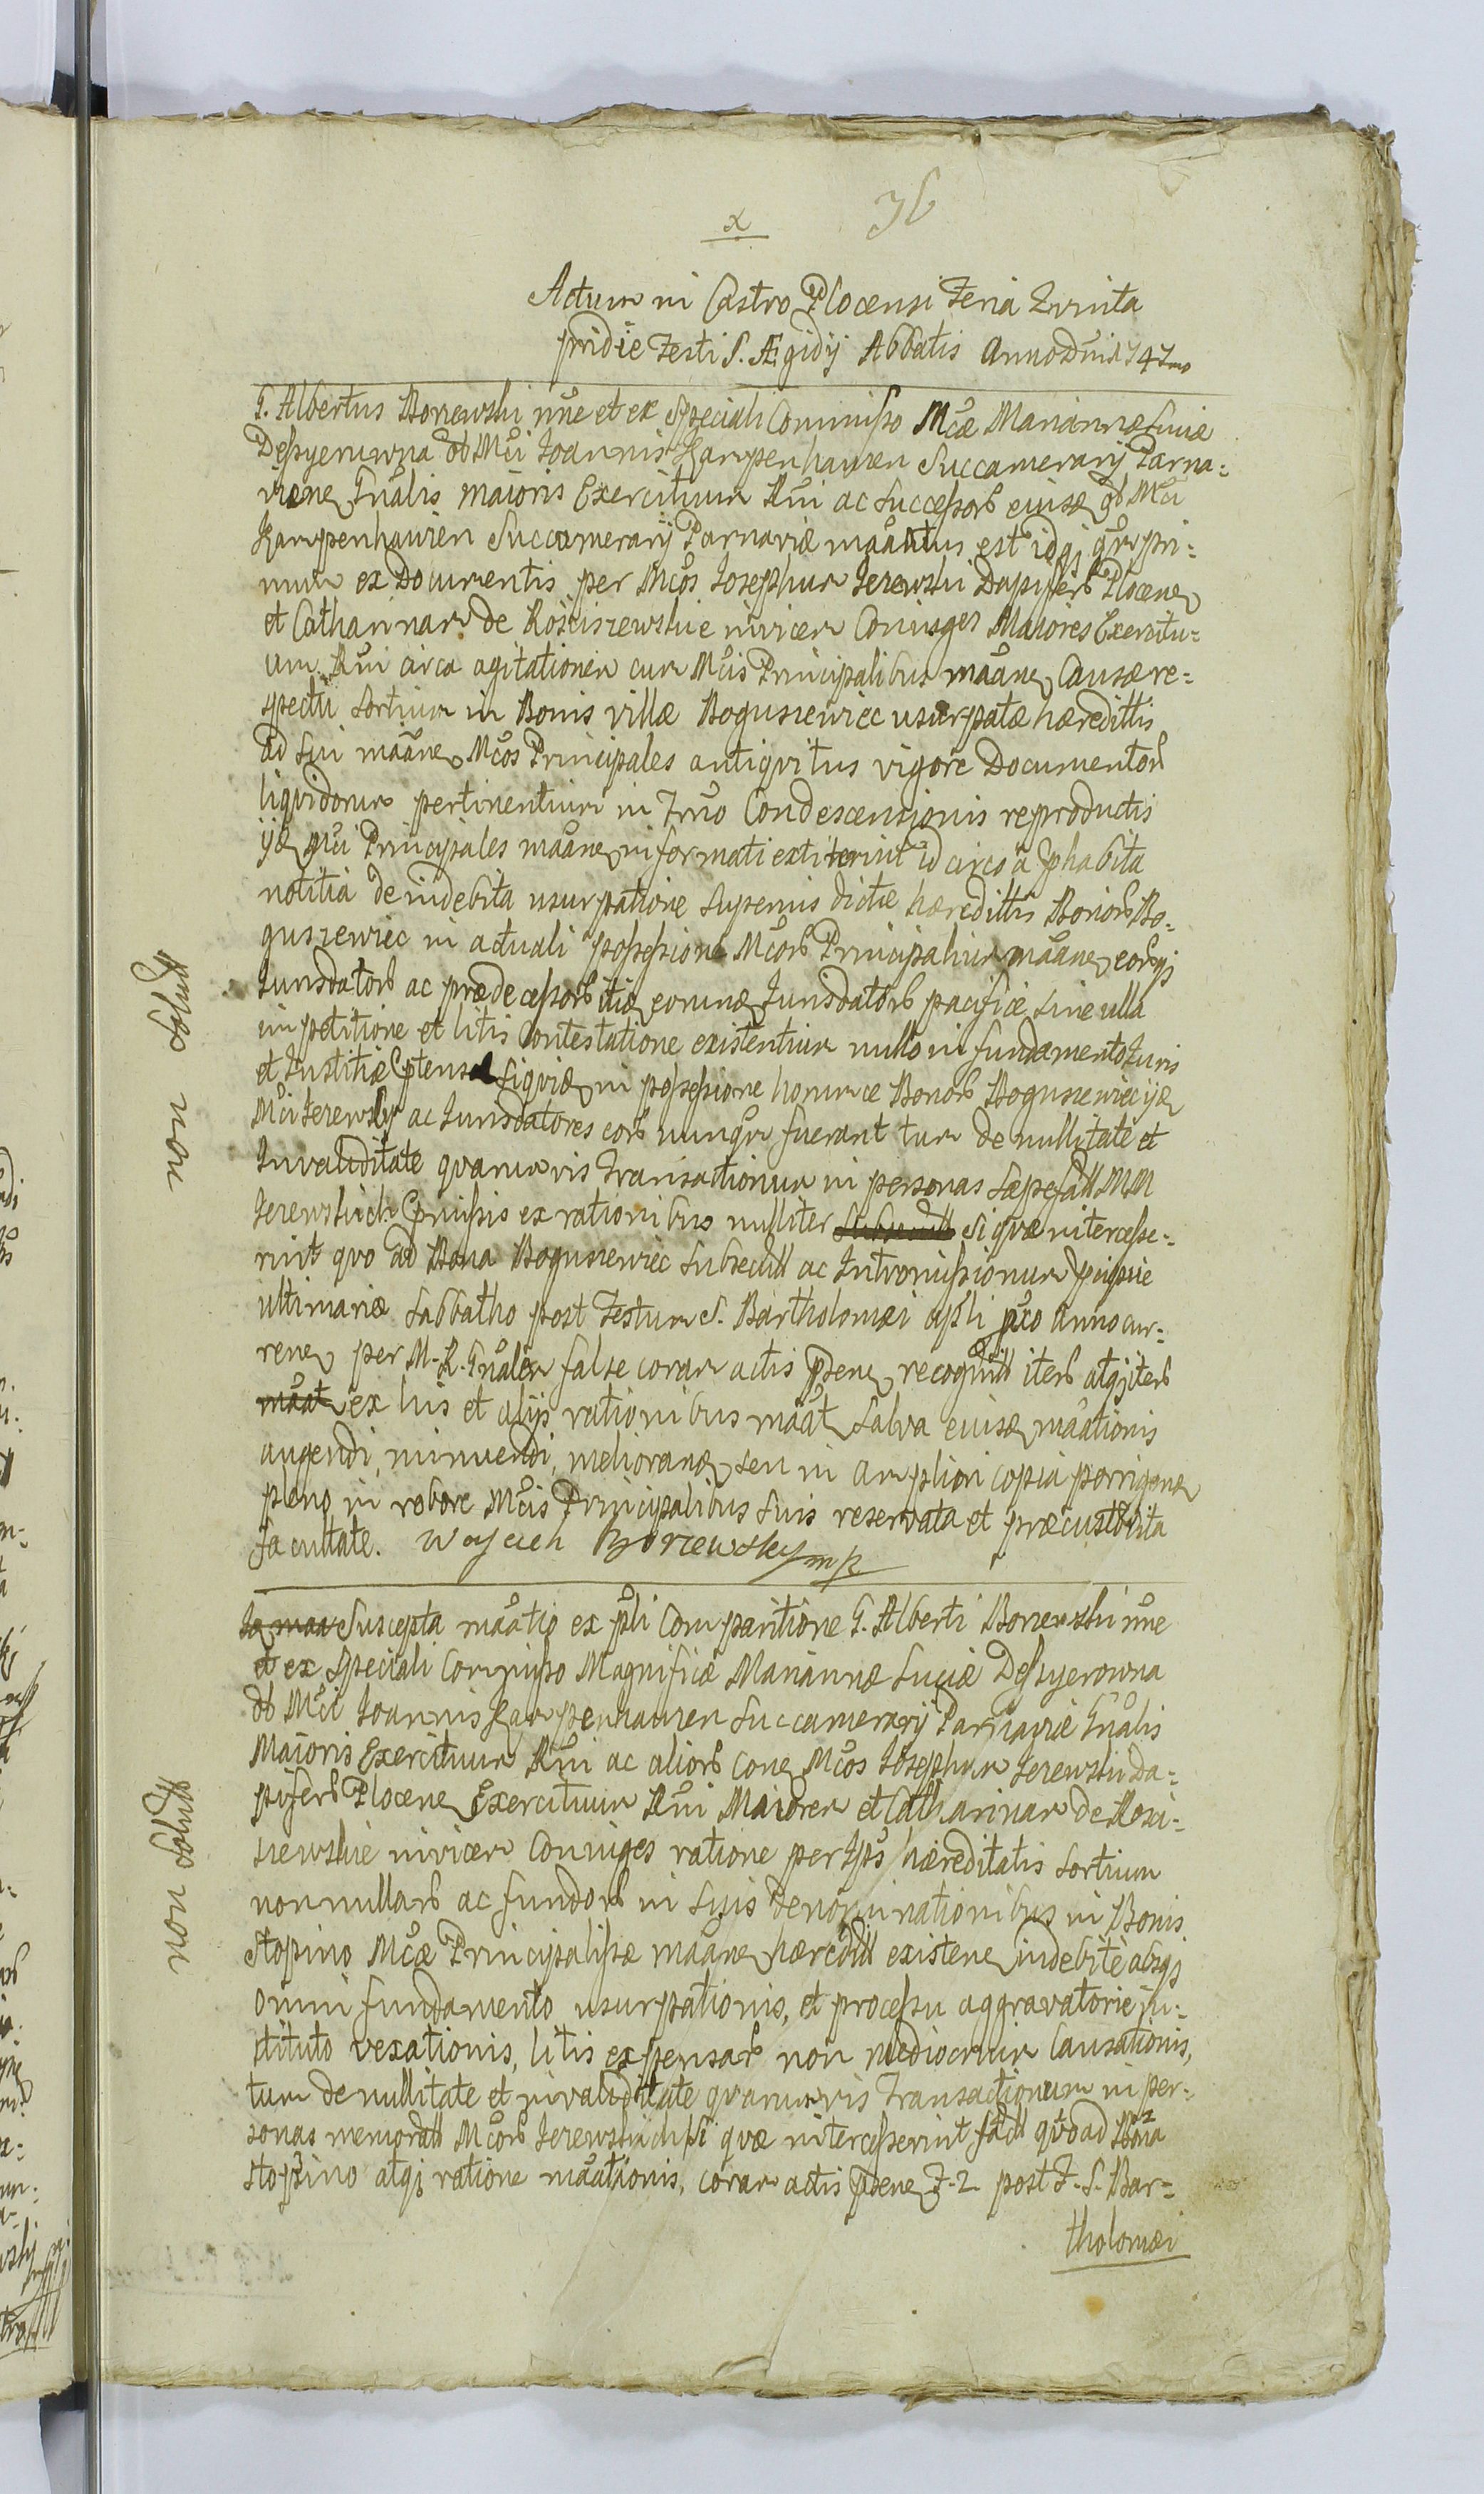 x
36
Actum in Castro Plocensi Feria Quinta
pridie Festi S. Ægidij Abbatis Anno Dni 1747mo
G. Albertus Borzewski nne et ex Speciali Commisso Mcæ Mariannæ Luciæ
ol Mci Joannis Kampenhauzen Succamerarij Parna-
viene Gnalis maioris Exercituum Rni ac Successorb eiusd ol Mci
Kampenhauzen Succamerarij Parnaviæ maatus est idqj qr pri-
mum ex Documentis per Mcos Josephum Jezewski Dapiferb Plocen
et Catharinam de Kosciszewskie invicem Coniuges Maiores Exercitu-
um Rni circa agitationem cum Mcis Principalibus maane Causæ re-
spectu sortium in Bonis villæ Boguszewiec usurpatæ hæredittis
ad sui maane Mcos Principales antiqvitus vigore Documentorb
liqvidorum pertinentium in Trno Condescensionis reproductis
ijd Mci Principales maane informati extiterint id circo a Cphabita
notitia de indebita usurpatione superius dictæ hæredittis Bonorb Bo-
guszewiec in actuali possessione Mcorb Principalium maane eorqj
Jurisdatorb ac prædecessorb itid eorund Jurisdatorb pacifice sine ulla
impetitione et litis Contestatione existentium nullo in fundamento Juris
et Justitiæ Cptensæ siqvid in possessione horumce Bonorb Boguszewiec ijd
Mci Jezewscy ac Jurisdatores eorb nunqr fuerant tum de nullitate et
Invaliditate qvarumvis Transactionum in personas sæpefatt MM
Jezewskich Cpmissis ex rationibus nulliter si qvæ intercesse-
rint qvo ad Bona Boguszewiec subsecutt ac Intromissionum
ultimariæ Sabbatho post Festum S. Bartholomæi apli pxo Anno cur-
rene per M. R. Gnalem false coram actis psene recognitt iterb atqj iterb
maat ex his et alijs rationibus maat Salva eiusd maationis
augendi, minuendi, meliorand seu in ampliori copia porrigend
pleno in robore Mcis Principalibus suis reservata et præcustodita
facultate. Woyciech Borzewsky mp
Suscepta maatio ex pli Comparitione G. Alberti Borzewski nne
et ex Speciali Commisso Magnificæ Mariannæ Luciæ
ol Mci Joannis Kampenhauzen Succamerarij Parnaviæ Gnalis
Maioris Exercituum Rni ac aliorb Cone Mcos Josephum Jezewski Da-
piferb Plocene Exercituum Rni Maiorem et Catharinam de Kosci-
szewskie invicem Coniuges ratione per Ips hæreditatis sortium
nonnullarb ac fundorb in suis denominationibus in Bonis
Stopino Mcæ Principalissæ maane hæreditt existene indebite absqj
omni fundamento usurpationis, et processu aggravatorie in-
stituto vexationis, litis expensarb non mediocrium Causationis,
tum de nullitate et invaliditate qvarumvis Transactionum in per-
sonas memoratt Mcorb Jezewskich si qvæ intercesserint fact qvoad Bona
Stopino atqj ratione maationis, coram actis psene F. 2. post F. S. Bar-
tholomæi
non Solvit
non Solvit